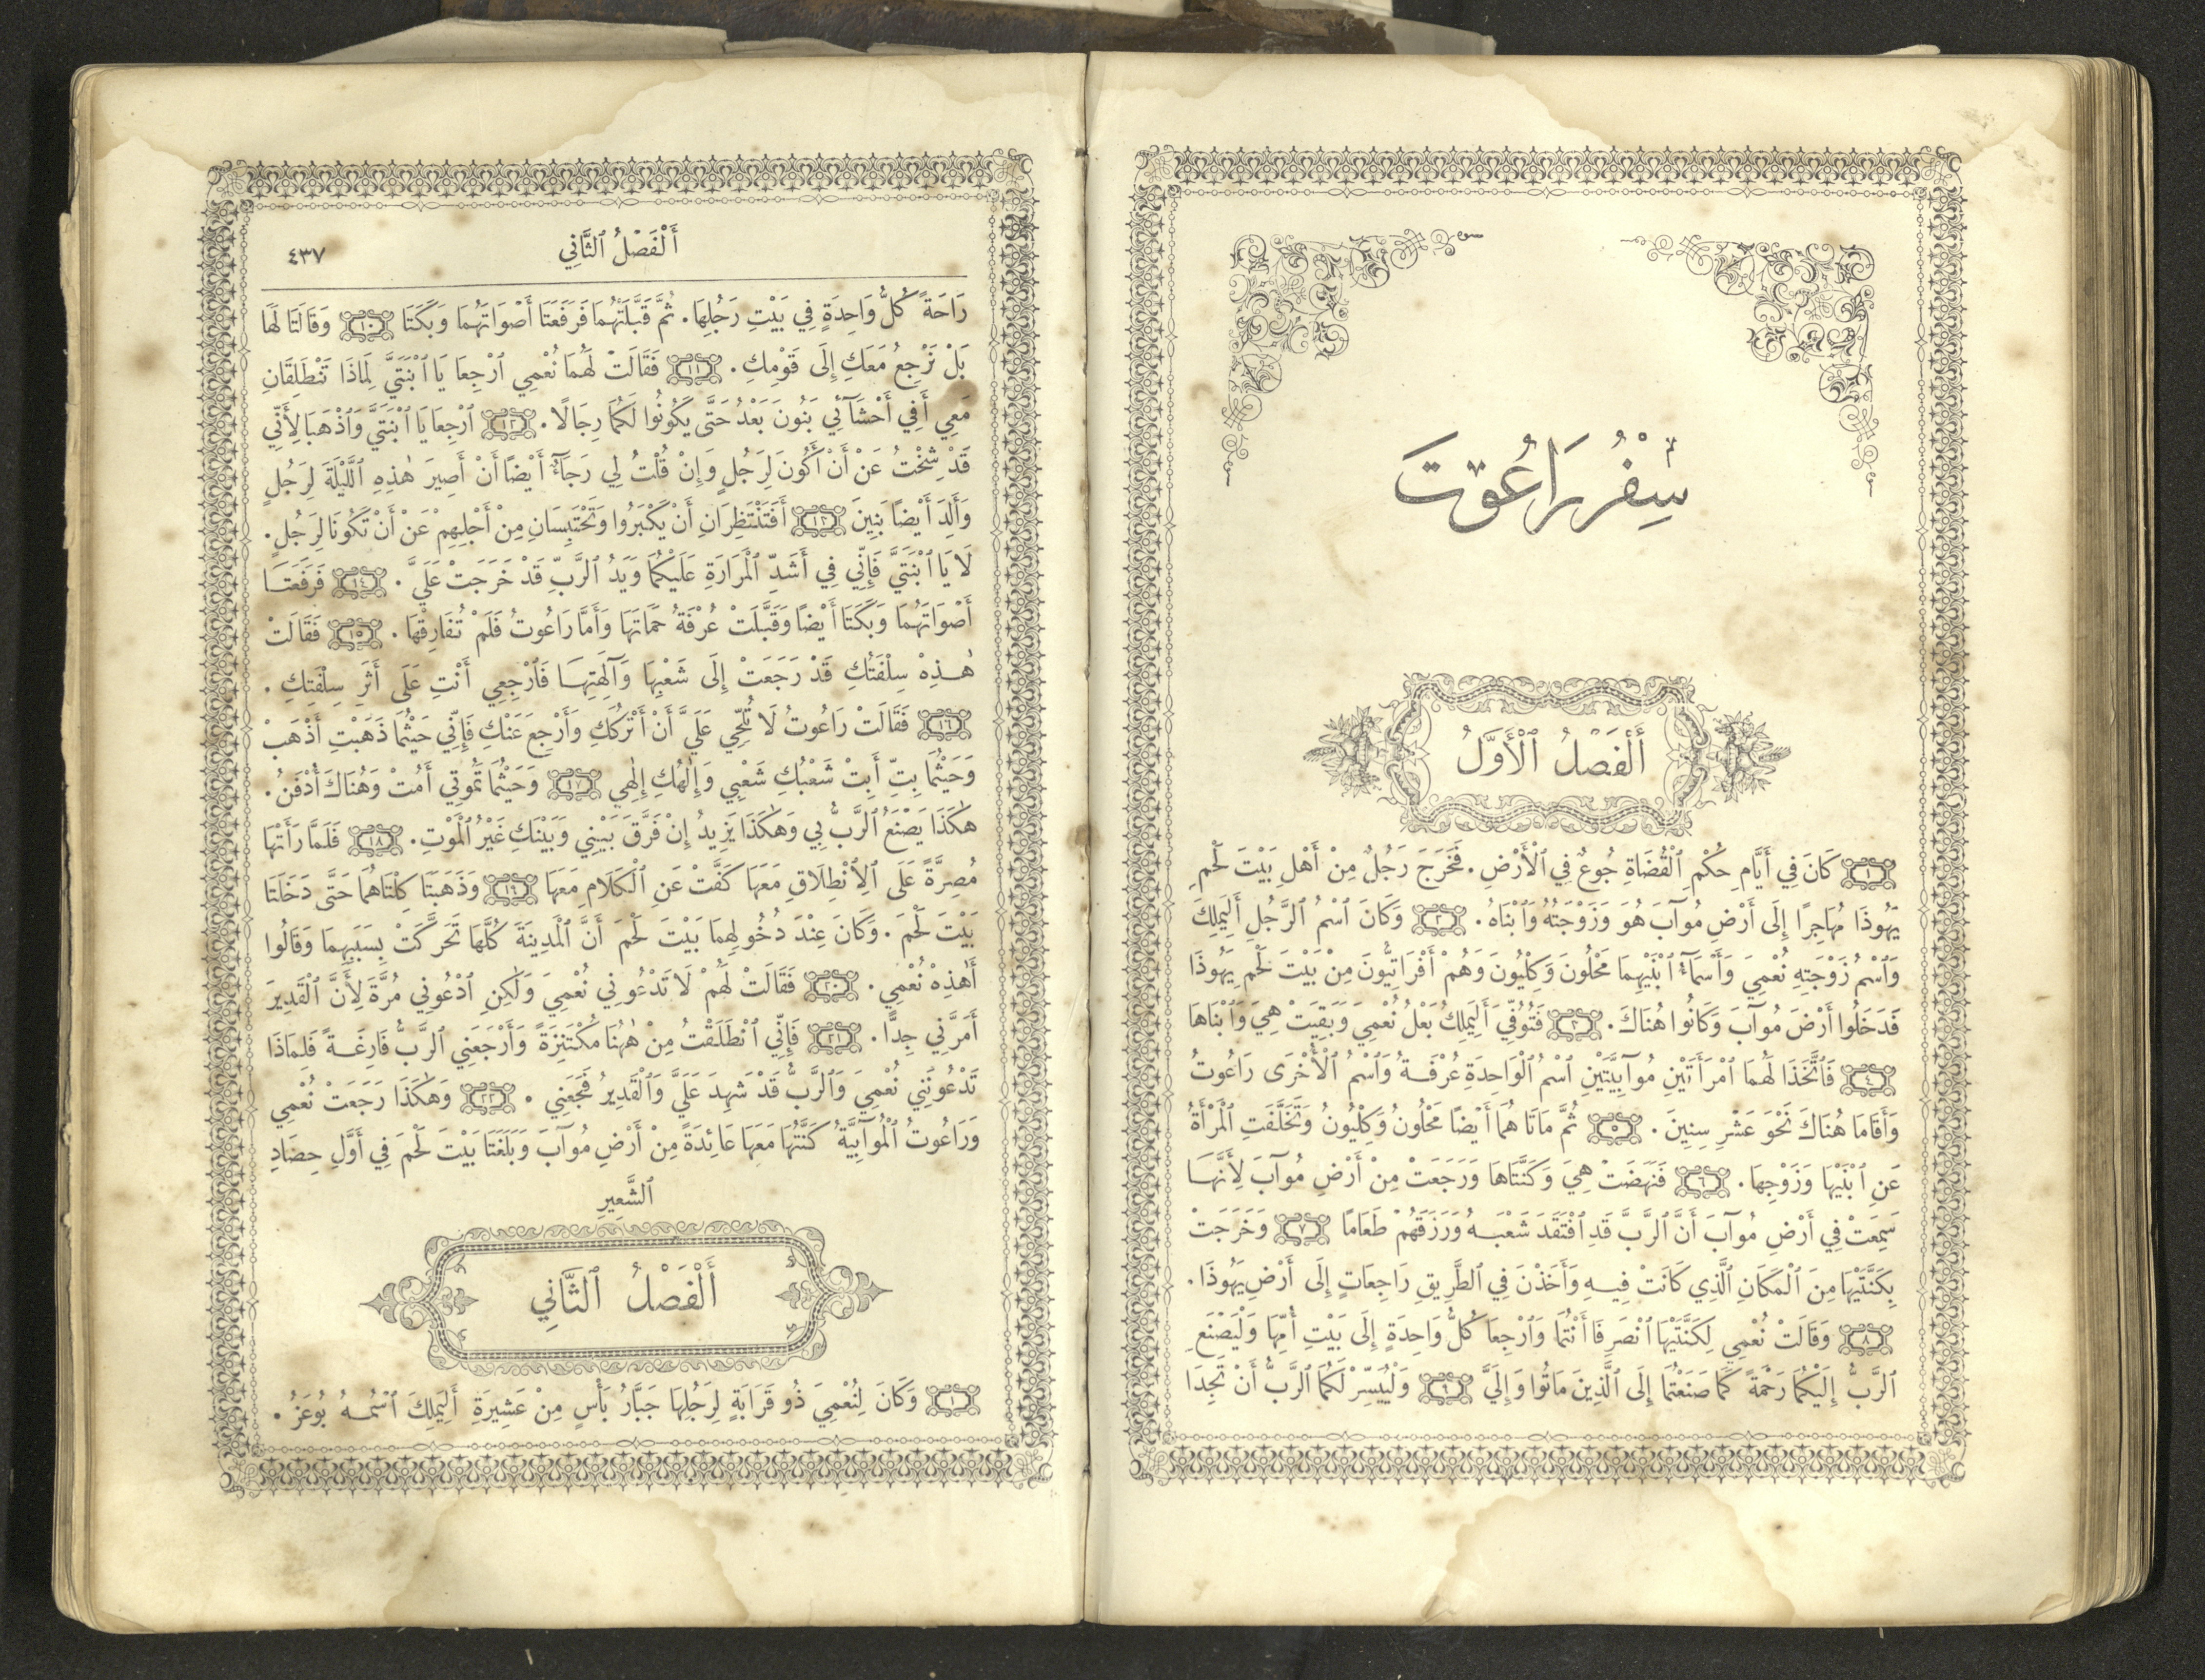 سِفْرُ رَاعُوتَ
أَلْفَصْلُ ٱلْأَوَّلُ
١ كَانَ فِي أَيَّامِ حُكْمِ ٱلْقُضَاةِ جُوعٌ فِي ٱلْأَرْضِ. فَخَرَجَ رَجُلٌ مِنْ أَهْلِ بَيْتَ لَحْمِ
يَهُوذَا مُهَاجِرًا إِلَى أَرْضِ مُوآبَ هُوَ وَزَوْجَتُهُ وَٱبْنَاهُ. ٢ وَكَانَ ٱسْمُ ٱلرَّجُلِ أَلِيمَلِكَ
وَٱسْمُ زَوْجَتِهِ نُعْمِيَ وَأَسْمَاءُ ٱبْنَيْهِمَا مَحْلُونَ وَكِلْيُونَ وَهُمْ أَفْرَاتِيُّونَ مِنْ بَيْتَ لَحْمِ يَهُوذَا
فَدَخَلُوا أَرْضَ مُوآبَ وَكَانُوا هُنَاكَ. ٣ فَتُوُفِّيَ أَلِيمَلِكُ بَعْلُ نُعْمِيَ وَبَقِيَتْ هِيَ وَٱبْنَاهَا
٤ فَٱتَّخَذَا لَهُمَا ٱمْرَأَتَيْنِ مُوآبِيَّتَيْنِ ٱسْمُ ٱلْوَاحِدَةِ عُرْفَةُ وَٱسْمُ ٱلْأُخْرَى رَاعُوتُ
وَأَقَامَا هُنَاكَ نَحْوَ عَشْرِ سِنِينَ. ٥ ثُمَّ مَاتَا هُمَا أَيْضًا مَحْلُونُ وَكِلْيُونُ وَتَخَلَّفَتِ ٱلْمَرْأَةُ
عَنِ ٱبْنَيْهَا وَزَوْجِهَا. ٦ فَنَهَضَتْ هِيَ وَكَنَّتَاهَا وَرَجَعَتْ مِنْ أَرْضِ مُوآبَ لِأَنَّهَا
سَمِعَتْ فِي أَرْضِ مُوآبَ أَنَّ ٱلرَّبَّ قَدِ ٱفْتَقَدَ شَعْبَهُ وَرَزَقَهُمْ طَعَامًا ٧ وَخَرَجَتْ
بِكَنَّتَيْهَا مِنَ ٱلْمَكَانِ ٱلَّذِي كَانَتْ فِيهِ وَأَخَذْنَ فِي ٱلطَّرِيقِ رَاجِعَاتٍ إِلَى أَرْضِ يَهُوذَا.
٨ وَقَالَتْ نُعْمِي لِكَنَّتَيْهَا ٱنْصَرِفَا أَنْتُمَا وَٱرْجِعَا كُلُّ وَاحِدَةٍ إِلَى بَيْتِ أُمِّهَا وَلْيَصْنَعِ
ٱلرَّبُّ إِلَيْكُمَا رَحْمَةً كَمَا صَنَعْتُمَا إِلَى ٱلَّذِينَ مَاتُوا وَإِلَيَّ ٩ وَلْيُيَسِّرْ لَكُمَا ٱلرَّبُّ أَنْ تَجِدَا
أَلْفَصْلُ ٱلثَّانِي ٤٣٧
رَاحَةً كُلُّ وَاحِدَةٍ فِي بَيْتِ رَجُلِهَا. ثُمَّ قَبَّلَتْهُمَا فَرَفَعَتَا أَصْوَاتَهُمَا وَبَكَتَا ١٠ وَقَالَتَا لَهَا
بَلْ نَرْجِعُ مَعَكِ إِلَى قَوْمِكِ. ١١ فَقَالَتْ لَهُمَا نُعْمِي ٱرْجِعَا يَا ٱبْنَتَيَّ لِمَاذَا تَنْطَلِقَانِ
مَعِي أَفِي أَحْشَآئِي بَنُونَ بَعْدُ حَتَّى يَكُونُوا لَكُمَا رِجَالًا. ١٢ ٱرْجِعَا يَا ٱبْنَتَيَّ وَٱذْهَبَا لِأَنِّي
قَدْ شِخْتُ عَنْ أَنْ أَكُونَ لِرَجُلٍ وَإِنْ قُلْتُ لِي رَجَآءٌ أَيْضًا أَنْ أَصِيرَ هٰذِهِ ٱللَّيْلَةَ لِرَجُلٍ
وَأَلِدَ أَيْضًا بَنِينَ ١٣ أَفَتَنْتَظِرَانِ أَنْ يَكْبَرُوا وَتَحْتَبِسَانِ مِنْ أَجْلِهِمْ عَنْ أَنْ تَكُونَا لِرَجُلٍ.
لَا يَا ٱبْنَتَيَّ فَإِنِّي فِي أَشَدِّ ٱلْمَرَارَةِ عَلَيْكُمَا وَيَدُ ٱلرَّبِّ قَدْ خَرَجَتْ عَلَيَّ. ١٤ فَرَفَعَتَا
أَصْوَاتَهُمَا وَبَكَتَا أَيْضًا وَقَبَّلَتْ عُرْفَةُ حَمَاتَهَا وَأَمَّا رَاعُوتُ فَلَمْ تُفَارِقْهَا. ١٥ فَقَالَتْ
هٰذِهْ سِلْفَتُكِ قَدْ رَجَعَتْ إِلَى شَعْبِهَا وَآلِهَتِهَا فَٱرْجِعِي أَنْتِ عَلَى أَثَرِ سِلْفَتِكِ.
١٦ فَقَالَتْ رَاعُوتُ لَا تُلِحِّي عَلَيَّ أَنْ أَتْرُكَكِ وَأَرْجِعَ عَنْكِ فَإِنِّي حَيْثُمَا ذَهَبْتِ أَذْهَبْ
وَحَيْثُمَا بِتِّ أَبِتْ شَعْبُكِ شَعْبِي وَإِلٰهُكِ إِلٰهِي ١٧ وَحَيْثُمَا تَمُوتِي أَمُتْ وَهُنَاكَ أُدْفَنُ.
هٰكَذَا يَصْنَعُ ٱلرَّبُّ بِي وَهٰكَذَا يَزِيدُ إِنْ فَرَّقَ بَيْنِي وَبَيْنَكِ غَيْرُ ٱلْمَوْتِ. ١٨ فَلَمَّا رَأَتْهَا
مُصِرَّةً عَلَى ٱلِٱنْطِلَاقِ مَعَهَا كَفَّتْ عَنِ ٱلْكَلَامِ مَعَهَا ١٩ وَذَهَبَتَا كِلْتَاهُمَا حَتَّى دَخَلَتَا
بَيْتَ لَحْمَ. وَكَانَ عِنْدَ دُخُولِهِمَا بَيْتَ لَحْمَ أَنَّ ٱلْمَدِينَةَ كُلَّهَا تَحَرَّكَتْ بِسَبَبِهِمَا وَقَالُوا
أَهٰذِهْ نُعْمِي. ٢٠ فَقَالَتْ لَهُمْ لَا تَدْعُونِي نُعْمِيَ وَلٰكِنِ ٱدْعُونِي مُرَّةَ لِأَنَّ ٱلْقَدِيرَ
أَمَرَّنِي جِدًّا. ٢١ فَإِنِّي ٱنْطَلَقْتُ مِنْ هٰهُنَا مُكْتَنِزَةً وَأَرْجَعَنِي ٱلرَّبُّ فَارِغَةً فَلِمَاذَا
تَدْعُونَنِي نُعْمِيَ وَٱلرَّبُّ قَدْ شَهِدَ عَلَيَّ وَٱلْقَدِيرُ فَجَعَنِي. ٢٢ وَهٰكَذَا رَجَعَتْ نُعْمِي
وَرَاعُوتُ ٱلْمُوآبِيَّةُ كَنَّتُهَا مَعَهَا عَائِدَةً مِنْ أَرْضِ مُوآبَ وَبَلَغَتَا بَيْتَ لَحْمَ فِي أَوَّلِ حِصَادِ
ٱلشَّعِيرِ
أَلْفَصْلُ ٱلثَّانِي
١ وَكَانَ لِنُعْمِيَ ذُو قَرَابَةٍ لِرَجُلِهَا جَبَّارُ بَأْسٍ مِنْ عَشِيرَةِ أَلِيمَلِكَ ٱسْمُهُ بُوعَزُ.